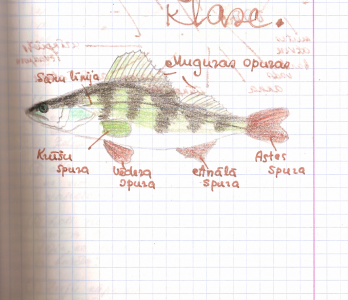 klase.
Muguras spuras
Sānu līnija
Krūšu
spura
Vēdera
spura
Anālā
spura
Astes
spura